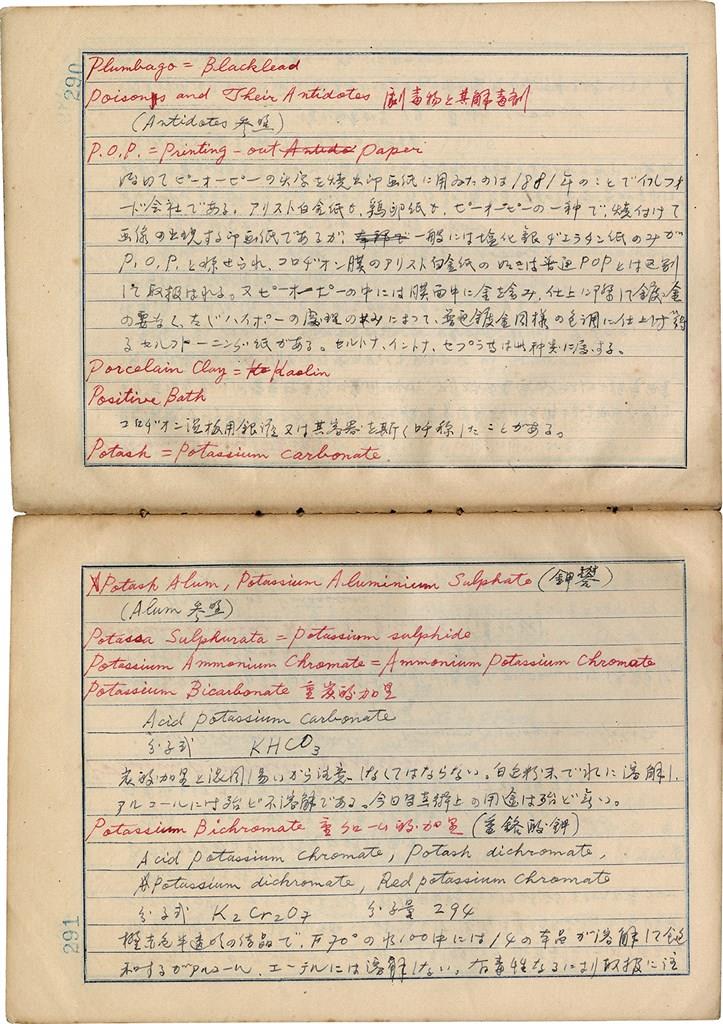 290
Plumbago = Blacklead
Poisons and Their Antidotes 劇毒物と其解毒剤
(Antidotes 参照)
P.O.P. = Printing-out Antido paper
始めてピーオーピーの文字を焼出印画紙に用ゐたのは1881年のことでイルフォ
ード会社である。アリスト白金紙か、鶏卵紙か、ピーオーピーの一種で、焼付けて
画像の出現する印画紙であるが、一般には塩化銀ゼラチン紙のみが
P.O.P.と称せられ、コロヂオン膜のアリスト白金紙の如きは普通POPとは区別
して取扱はれる。又ピーオーピーの中には膜面中に金を含み、仕上に際して鍍金
の要なく、たじハイポーの処理のみによつて、普通鍍金同様の色調に仕上げ得
るセルフトーニング紙がある。セルトナ、イントナ、セプラ等は此種類に属する。
Porcelain Clay = Kaolin
Positive Bath
コロヂオン湿板用銀液又は其容器を斯く呼称したことがある。
Potash = Potassium carbonate
Potash Alum, Potassium Aluminium Sulphate (鉀礬)
(Alum 参照)
Potassa Sulphurata = Potassium sulphide
Potassium Ammonium Chromate = Ammonium Potassium Chromate
Potassium Bicarbonate 重炭酸加里
Acid potassium carbonate
分子式 KHCO3
炭酸加里と混同し易いから注意しなくてはならない。白色粉末で水に溶解し、
アルコールには殆ど不溶解である。今日写真術上の用途は殆ど無い。
Potassium Bichromate 重クローム酸加里 (重鉻酸鉀)
Acid potassium chromate, Potash dichromate,
Potassium dichromate, Red potassium chromate
分子式 K2Cr2O7 分子量 294
橙赤色半透明の結晶で、F70°の水100中には14の本品が溶解して飽
和するがアルコール、エーテルには溶解しない。有毒性なるにより取扱に注
291